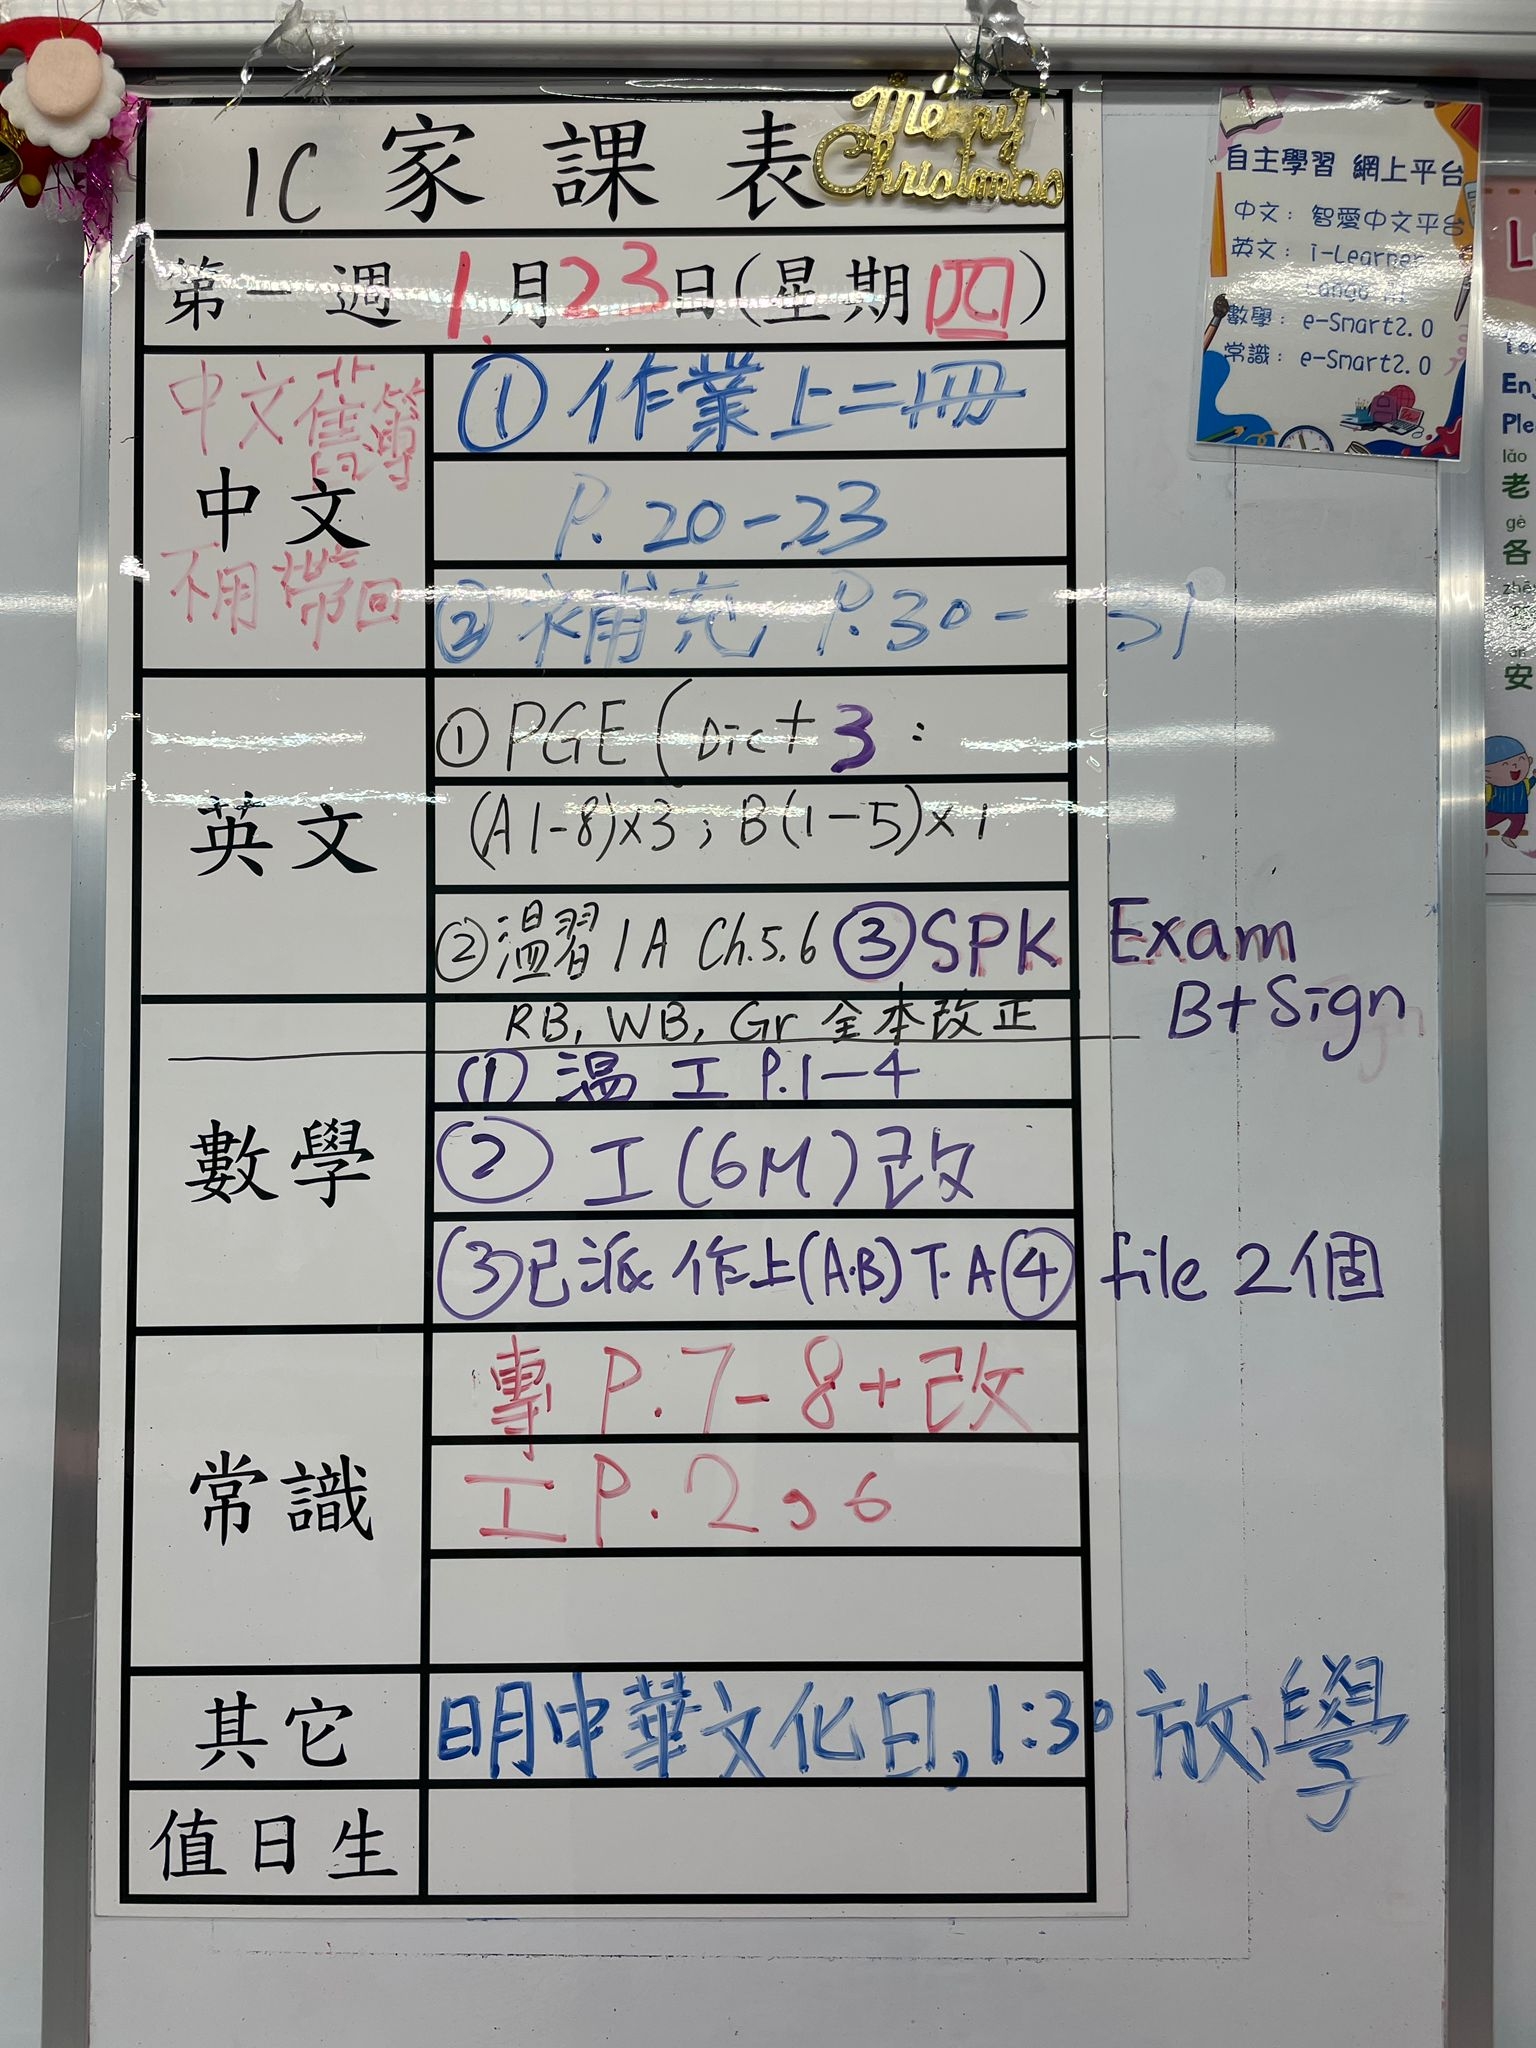 1C 家課表
Merry
Christmas
第一週 1月23日(星期四)
中文舊簿
中文
不用帶回
① 作業上二冊
P. 20-23
② 補充 P.30-31
英文
① PGE (Dict 3 :
(A 1-8)x3; B(1-5)x1
② 溫習 1A Ch.5.6 ③ SPK Exam
B+Sign
RB, WB, Gr 全本改正
數學
① 溫 工 P.1-4
② 工(6M)改
③已派 作上(A.B) T.A ④ file 2個
常識
專 P.7-8+改
工 P.2,6
其它
明中華文化日,1:30 放學
值日生
自主學習 網上平台
中文: 智愛中文平台
英文: i-Learner
數學: e-Smart2.0
常識: e-Smart2.0
En
Ple
lǎo
老
gè
各
ān
安